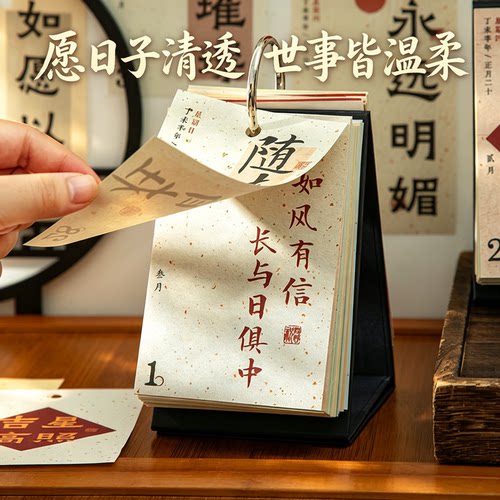 愿日子清透 世事皆温柔
如愿以
璀
永远明媚
丁未羊年/正月二十
贰月
2
星期日
丁未羊年
随
如风有信
长与日俱中
叁月
1
吉星
高照